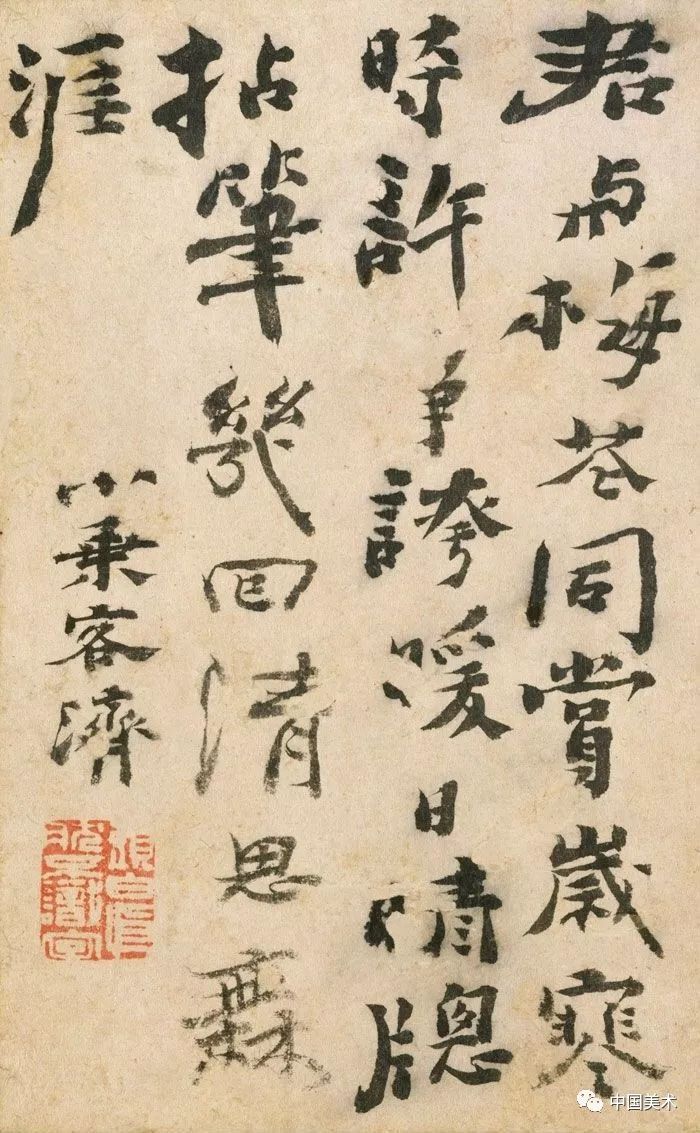 君与梅花同賞歲寒
時許争誇暖日晴牕
拈筆幾回清思無
涯
小乘客濟
中国美术